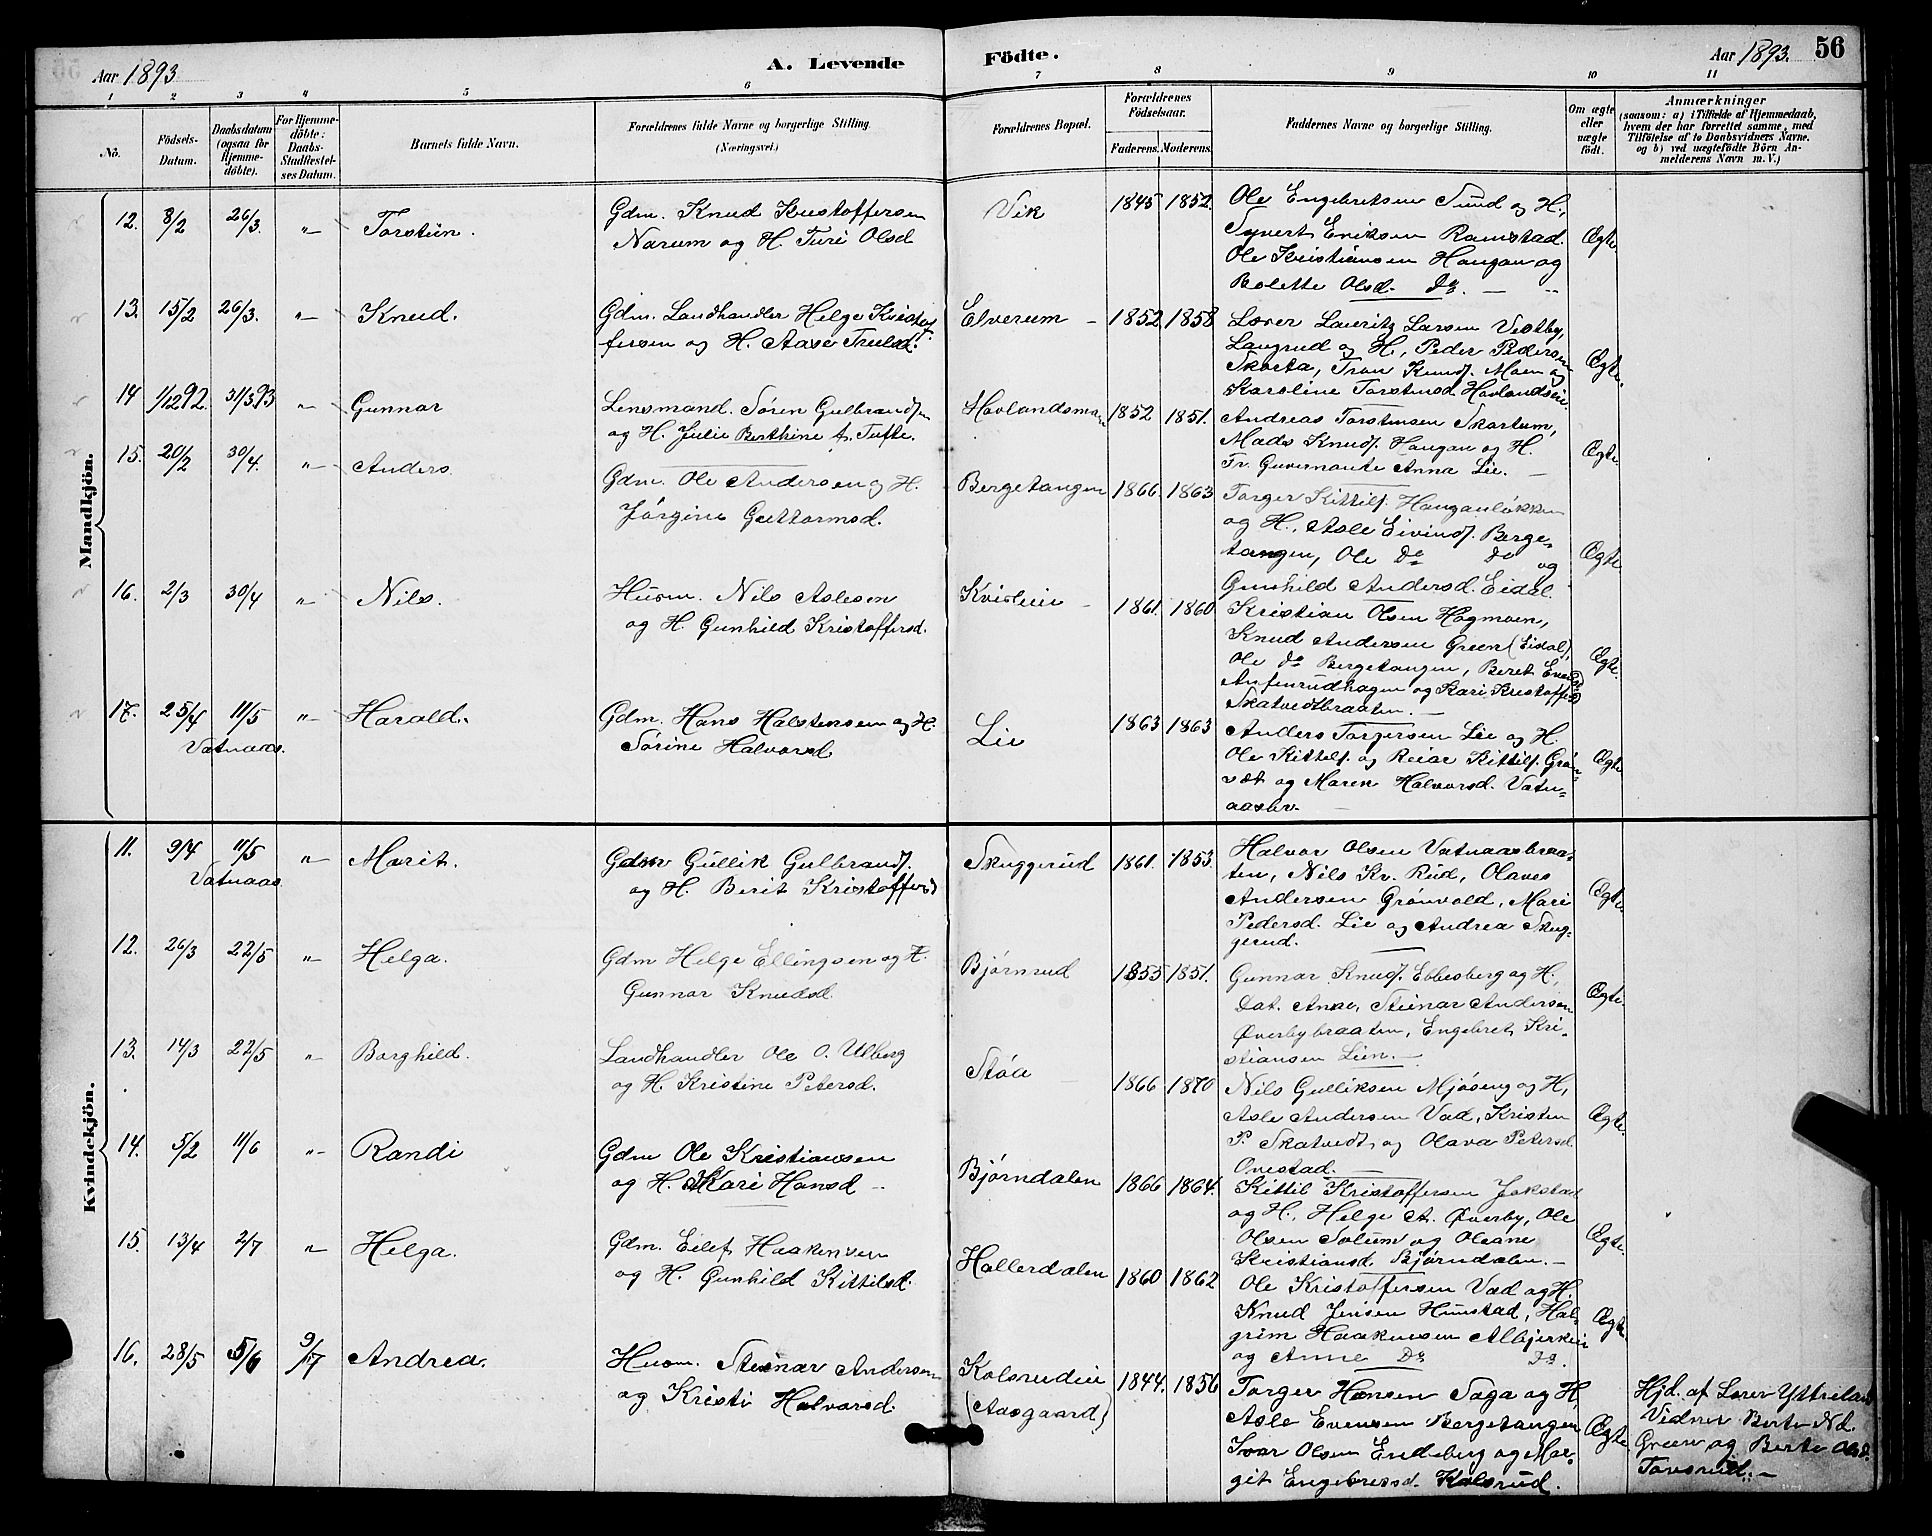 Aar 1893
A. Levende
Födte.
Aar 1893.
56
1 2 3 4 5 6 7 8 9 10 11
No.
Födsels-
Datum.
Daabsdatum
(ogsaa for
Hjemme-
döbte).
For Hjemme-
döbte:
Daabs-
Stadfæstel-
ses Datum.
Barnets fulde Navn.
Forældrenes fulde Navne og borgerlige Stilling.
(Næringsvei.)
Forældrenes Bopæl.
Forældrenes
Födselsaar.
Faderens. Moderens.
Faddernes Navne og borgerlige Stilling.
Om ægte
eller
uægte
födt.
Anmærkninger
(saasom: a) i Tilfælde af Hjemmedaab,
hvem der har forrettet samme, med
Tilföielse af to Daabsvidners Navne.
og b) ved uægtefödte Börn An-
melderens Navn m. V.)
Mandkjön.
12. 8/2 26/3. " Torstein.
Gdm. Knud Kristoffersen
Narum og H. Turi Olsd
Vik 1845 1852.
Ole Engebretsen Sund og H.,
Syvert Eriksen Ramstad.
Ole Kristiansen Haugan og
Bolette Olsd. Do. — "
Ægte.
13. 15/2 26/3. " Knud.
Gdm. Landhandler Helge Kristof-
fersen og H. Aase Trulsd.
Elverum 1852 1858
Lærer Lauritz Larsen Vestby,
Laugrud og H., Peder Pedersen
Skarta, Tron Knuds. Moen og
Karoline Torstensd Hovlandseie.
Ægte.
14 1/12 92. 31/3.93 " Gunnar
Lensmand. Sören Gulbrandsen
og H. Julie Berthine f. Tufte.
Hovlandsmoen 1852 1851.
Andreas Torstensen Skartum,
Mads Knuds. Haugan og H.
Fr. Guvernante Anna Lie. —
Ægte.
15. 20/2 30/4. " Anders
Gdm. Ole Andersen og H.
Jörgine Guttormsd.
Bergetangen 1866. 1863
Torger Kittils. Hauganlökken
og H., Asle Eivinds. Berge-
tangen, Ole Do Do og
Gunhild Andersd. Eidal.
Ægte
16. 2/3 30/4 " Nils.
Husm. Nils Aslesen
og H. Gunhild Kristoffersd.
Kvisleeie 1861. 1860
Kristian Olsen Hagmoen,
Knud Andersen Green (Eidal),
Ole Do Bergetangen, Beret
Anfinrudhagen og Kari Kristoffersd
Skatvedtbraaten. —
Ægte.
17. 25/4 11/5 " Harald.
Vatnaas.
Gdm. Hans Halstensen og H
Sörine Halvorsd
Lie 1863 1863
Anders Torgersen Lie og H.
Ole Kittels. og Reiar Kittils. Grön-
væt og Maren Halvorsd. Vatn-
aasbr. —
Ægte
Kvindekjön.
11. 9/4 11/5 " Marit.
Vatnaas
Gdm Gullik Gulbrands.
og H. Berit Kristoffersd
Skuggerud 1861. 1853.
Halvor Olsen Vatnaasbraa-
ten, Nils Kr. Rud, Olaves
Andersen Grönvold, Mari
Pedersd. Lie og Andrea Skug-
gerud. —
Ægte.
12. 26/3 22/5 " Helga.
Gdm Helge Ellingsen og H.
Gunnor Knudsd.
Bjørnrud 1855 1851.
Gunnar Knuds. Ebbesberg og H.,
Dat. Anne, Steinar Andersen
Øverbybraaten, Engebret Kri-
stiansen Lien. —
Ægte.
13. 14/3 22/5 " Borghild.
Landhandler Ole O. Ulberg
og H. Kristine Petersd.
Støa 1866 1870
Nils Gulliksen Mjøseng og H,
Asle Andersen Vad, Kristen
P. Skatvedt, og Olava Petersd.
Onestad. —
Ægte.
14. 5/2 11/6 " Randi
Gdm Ole Kristiansen
og H. Kari Hansd
Bjørndalen 1866 1864.
Kittil Kristoffersen Jokstad
og H., Helge A. Øverby, Ole
Olsen Solum og Oleane
Kristiansd. Bjørndalen. —
Ægte.
15. 13/4 2/7 " Helga.
Gdm. Eilef Haakensen
og H. Gunhild Kittilsd.
Hallerdalen 1860 1862
Ole Kristoffersen Vad og H.
Knud Jensen Hunstad, Hal-
grim Haakensen Albjerkeie
og Anne Do. Do.
Ægte.
16. 28/5 5/6 9/7 Andrea.
Husm. Steinar Andersen
og Kristi Halvorsd.
Kolsrudeie
(Aasgaard)
1844. 1856
Torger Hansen Saga og H,
Asle Evensen Bergetangen
Ivar Olsen Endeberg og Mar-
git Engebretsd. Kolsrud.
Ægte.
Hjd. af Lærer Ytreland
Vidner Berte Nd.
Green og Berte Olsd.
Tovsrud. —